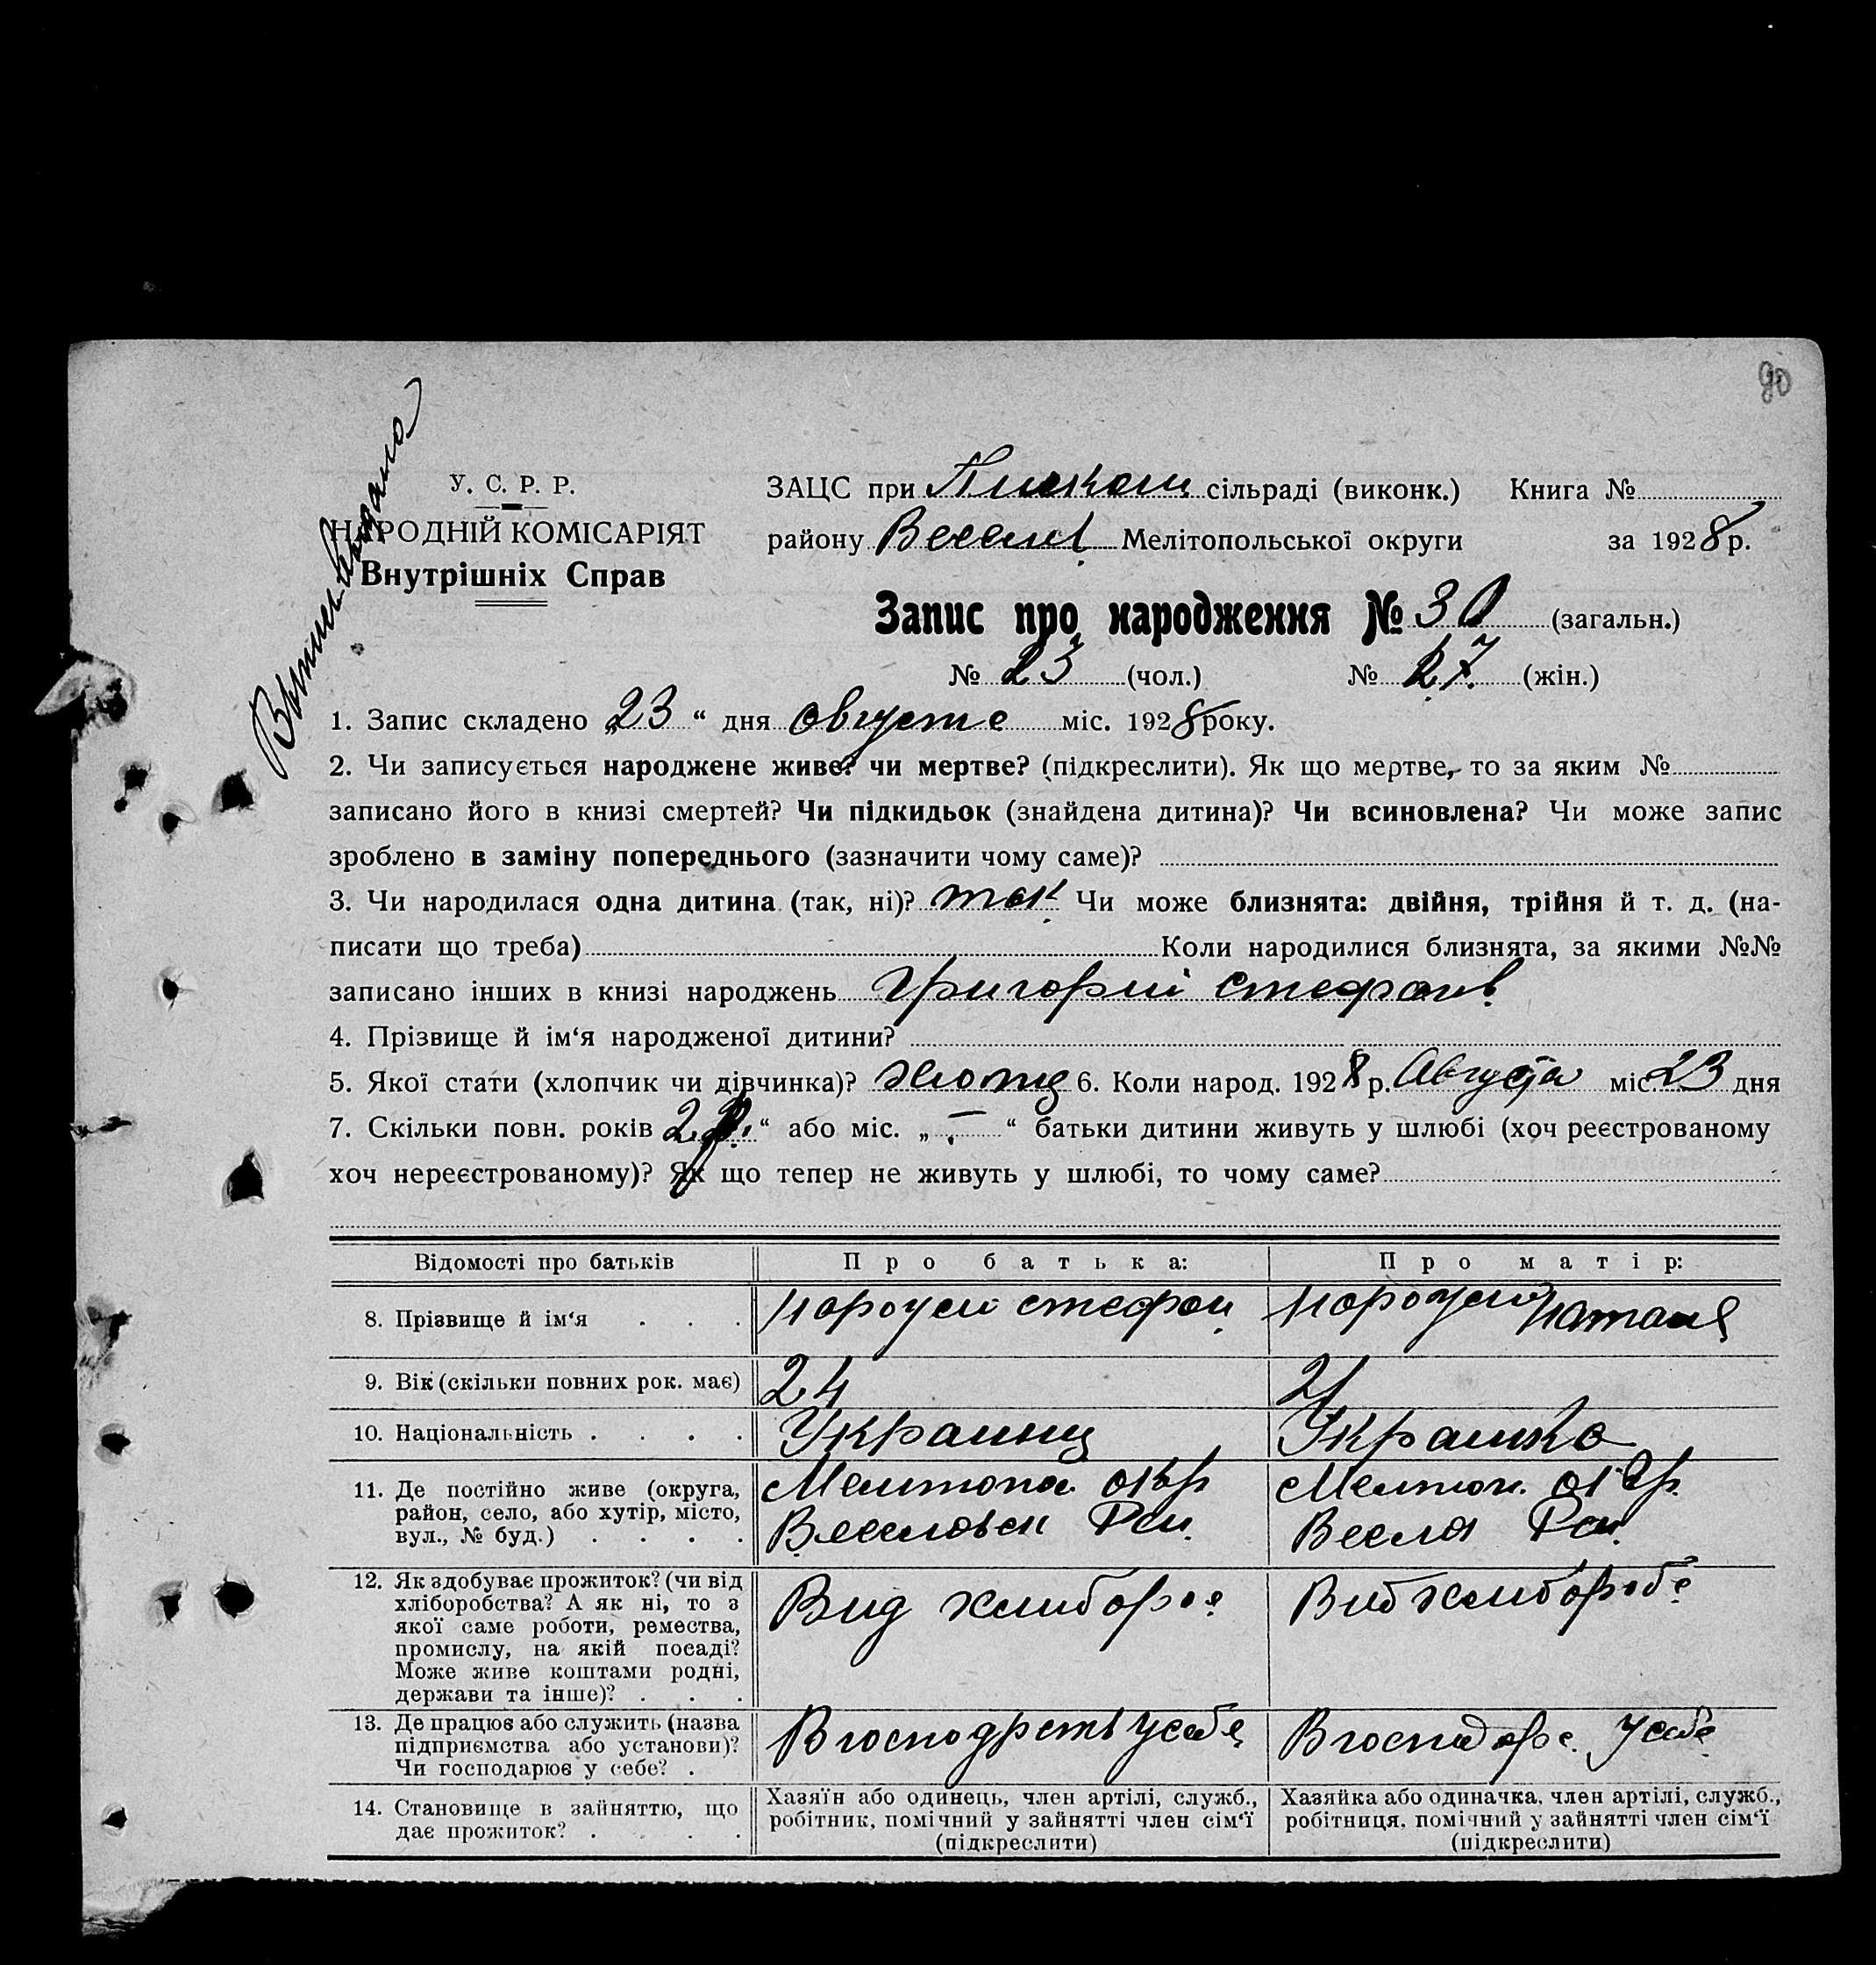 90
У. С. Р. Р.
НАРОДНІЙ КОМІСАРІЯТ
Внутрішніх Справ
ЗАЦС при сільраді (виконк.) Книга №
району Весел Мелітопольської округи за 1928 р.
Запис про народження № 30 (загальн.)
№ 23 (чол.) № (жін.)
1. Запис складено „23“ дня августа міс. 1928 року.
2. Чи записується народжене живе? чи мертве? (підкреслити). Як що мертве, то за яким №
записано його в книзі смертей? Чи підкидьок (знайдена дитина)? Чи всиновлена? Чи може запис
зроблено в заміну попереднього (зазначити чому саме)?
3. Чи народилася одна дитина (так, ні)? так Чи може близнята: двійня, трійня й т. д. (на-
писати що треба) Коли народилися близнята, за якими №№
записано інших в книзі народжень Григорий Стефанов
4. Прізвище й ім‘я народженої дитини?
5. Якої стати (хлопчик чи дівчинка)? хлопец 6. Коли народ. 1928 р. Августа міс. 23 дня
7. Скільки повн. років “ або міс. „ — “ батьки дитини живуть у шлюбі (хоч реєстрованому
хоч нереєстрованому)? Як що тепер не живуть у шлюбі, то чому саме?
Відомості про батьків Про батька: Про матір:
8. Прізвище й ім‘я . . . стефан
9. Вік (скільки повних рок. має) 24
10. Національність . . . . Украинец Украинка
11. Де постійно живе (округа,
район, село, або хутір, місто,
вул., № буд.) . . . .
Мелитопол окр
Веселовск Рай.
Мелитоп. окр.
Весело Рай.
12. Як здобуває прожиток? (чи від
хліборобства? А як ні, то з
якої саме роботи, ремества,
промислу, на якій посаді?
Може живе коштами родні,
держави та інше)? . . .
Вид
Вид
13. Де працює або служить (назва
підприємства або установи)?
Чи господарює у себе? .
у себе
у себе
14. Становище в зайняттю, що
дає прожиток? . . . .
Хазяїн або одинець, член артілі, служб.,
робітник, помічний у зайнятті член сім‘ї
(підкреслити)
Хазяйка або одиначка, член артілі, служб.,
робітниця, помічний у зайнятті член сім‘ї
(підкреслити)